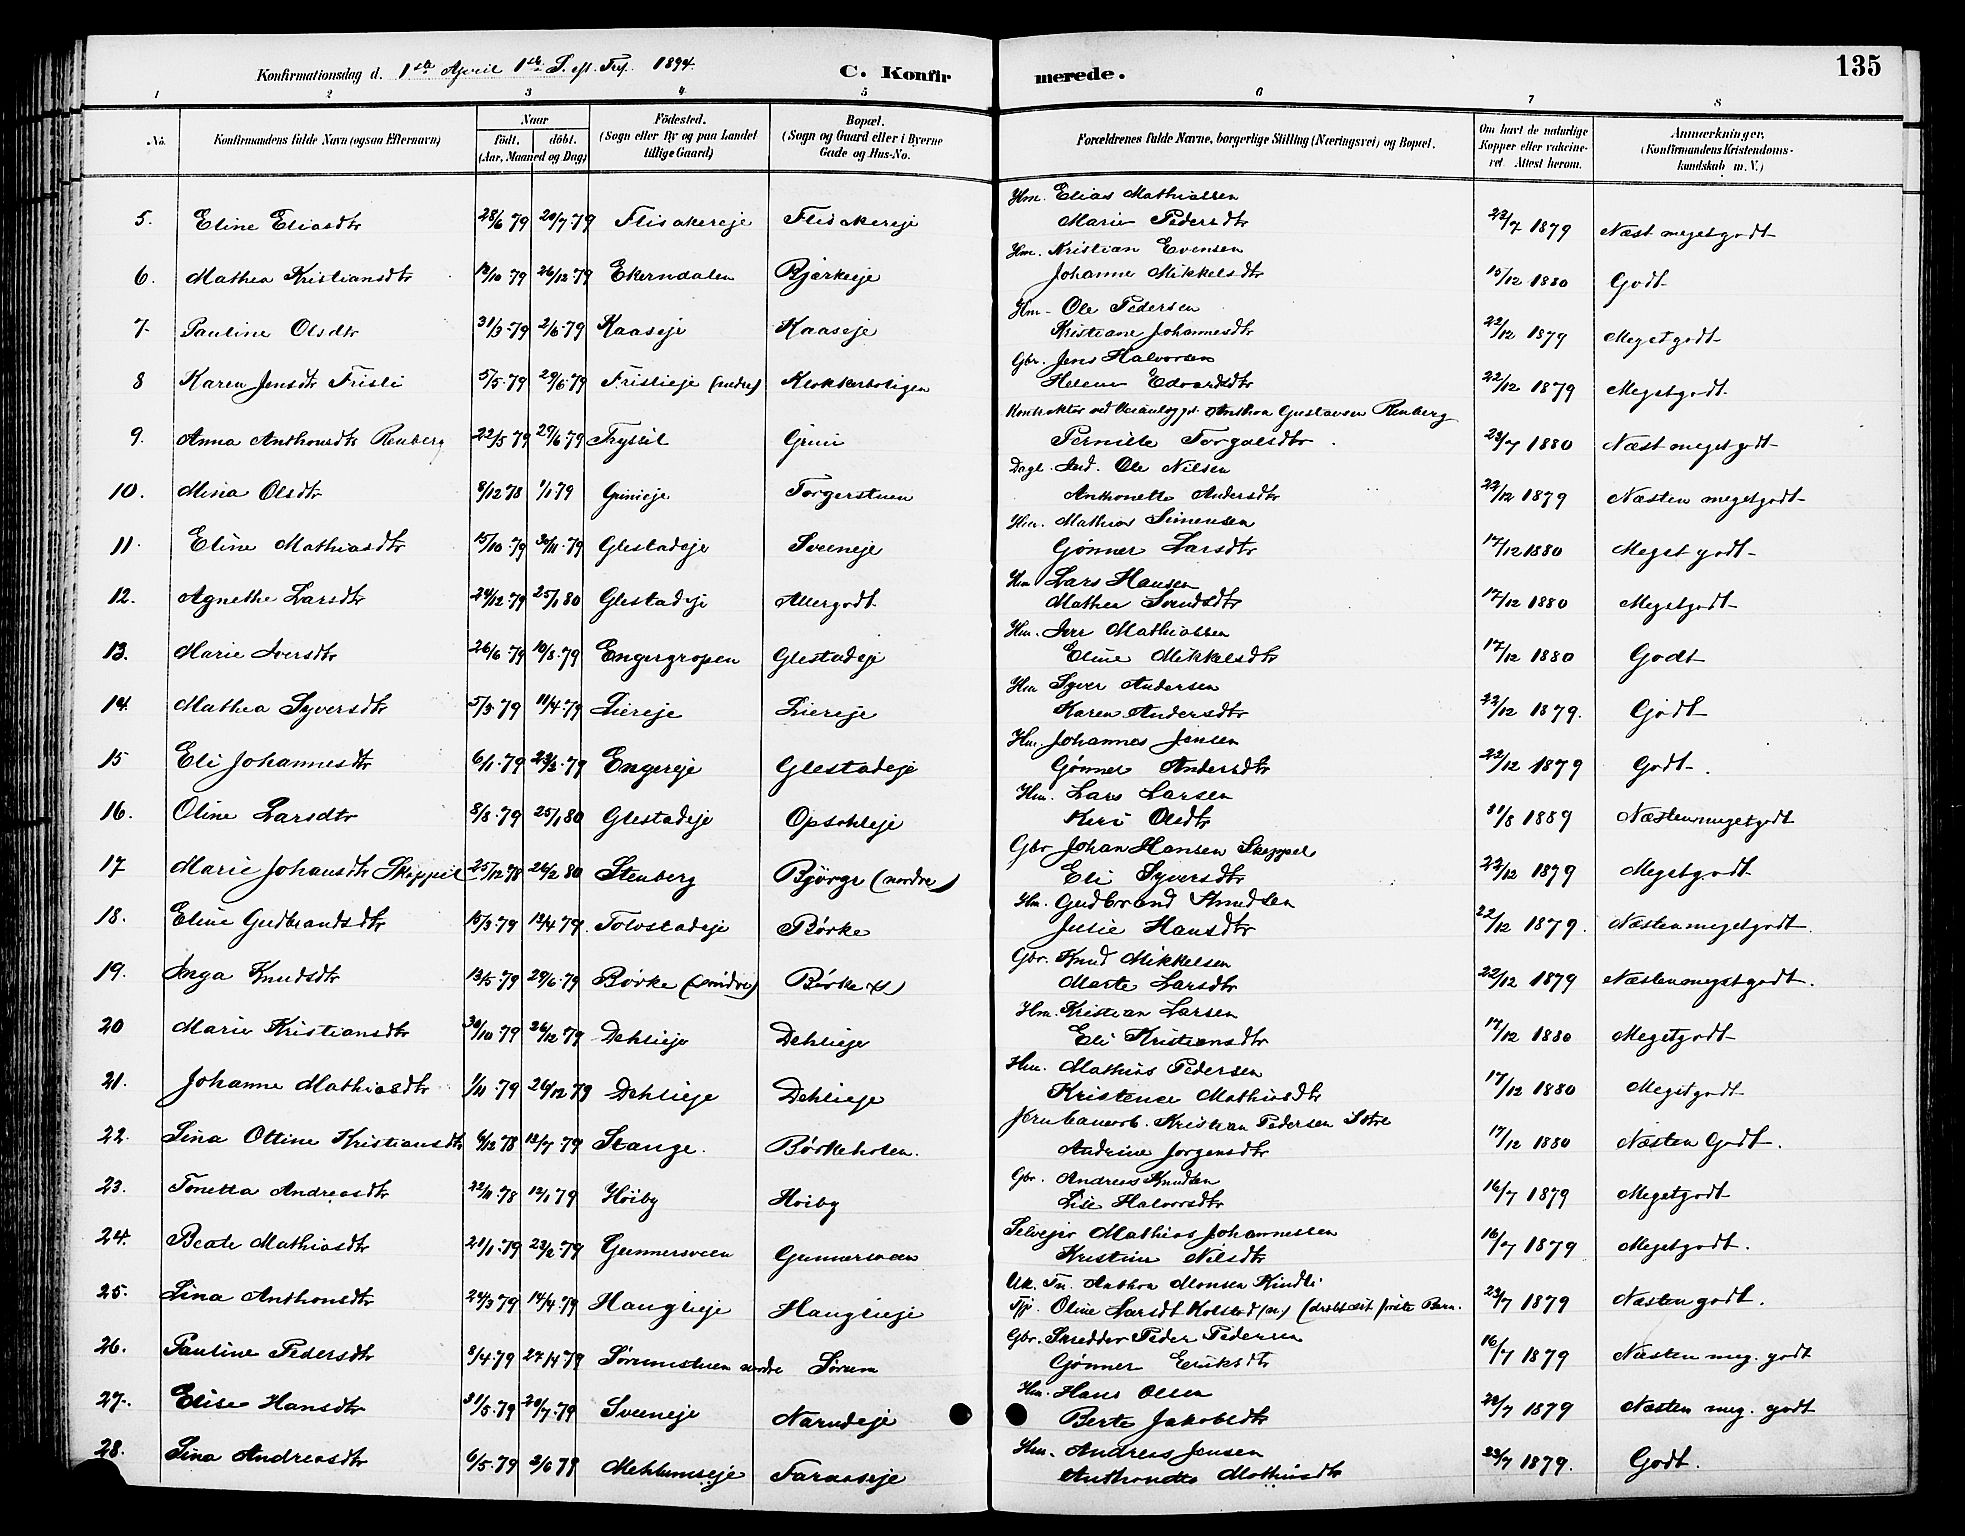 135
Konfirmationsdag d. 1ste April 1ste S. eft. 1894.
C. Konfirmerede.
1 2 3 4 5 6 7 8
No. Konfirmandens fulde Navn (ogsaa Efternavn) Naar født. døbt. (Aar, Maaned og Dag) Fødested. (Sogn eller By og paa Landet tillige Gaard) Bopæl. (Sogn og Gaard eller i Byerne Gade og Hus-No. Forældrenes fulde Navne, borgerlige Stilling (Næringsvei) og Bopæl. Om havt de naturlige Kopper eller vakcineret. Attest herom. Anmærkninger. (Konfirmandens Kristendomskundskab m. V.)
5. Eline Eliasdtr 28/6 79 20/7 79 Flisakereje Flisakereje Hm. Elias Mathiassen
Marie Pedersdtr 22/7 1879 Næst megetgodt
6. Mathea Kristiansdtr 12/10 79 26/12 79 Ekerndalen Bjerkeeje Hm. Kristian Evensen
Johanne Mikkelsdtr 15/12 1880 Godt
7. Pauline Olsdtr 31/3 79 2/6 79 Kaaseje Kaaseje Hm. Ole Pedersen
Kristiane Johannesdtr 22/12 1879 Megetgodt
8 Karen Jensdtr Frisli 5/5 79 29/6 79 Frislieje (nedre) Klokkerboligen Gbr. Jens Halvorsen
Helene Edvardsdtr 22/12 1879 Megetgodt
9. Anna Anthonsdtr Renberg 22/5 79 29/6 79 Trysil Grini Anthon Gustavsen Renberg
Pernille Torgalsdtr. 23/7 1880 Næst megetgodt
10. Mina Olsdtr 8/12 78 1/1 79 Grinieje Torgerstuen Dagl. Ind. Ole Nilsen
Anthonette Andersdtr 22/12 1879 Næsten megetgodt
11. Eline Mathiasdtr 15/10 79 30/11 79 Glestadeje Sveeneje Hm. Mathias Simensen
Gønner Larsdtr 17/12 1880 Meget godt
12. Agnethe Larsdtr 24/12 79 25/1 80 Glestadeje Allergodt Hm Lars Hansen
Mathea Svendsdtr 17/12 1880 Megetgodt
13. Marie Iversdtr 26/6 79 10/8 79 Engergropen Glestadeje Hm. Iver Mathiassen
Eline Mikkelsdtr 17/12 1880 Godt
14. Mathea Syversdtr 5/3 79 11/4 79 Liereje Liereje Hm Syver Andersen
Karen Andersdtr 22/12 1879. Godt
15 Eli Johannesdtr 6/1 79 23/2 79 Engereje Glestadeje Hm Johannes Jensen
Gønner Andersdtr 22/12 1879 Godt.
16. Oline Larsdtr 8/8 79 25/1 80 Glestadeje Opsahleje Hm. Lars Larsen
Kari Olsdtr 31/8 1889 Næstenmegetgodt
17 Marie Johansdtr Skeppel 25/12 78 26/2 80 Stenberg Bjørge (nordre) Gbr Johan Hansen Skeppel
Eli Syversdtr 22/12 1879 Megetgodt
18. Eline Gudbrandsdtr 15/3 79 12/4 79 Tolvstadeje Børke Hm. Gudbrand Knudsen
Julie Hansdtr 22/12 1879. Næstenmegetgodt.
19. Inga Knudsdtr 13/5 79 29/6 79 Børke (søndre) Børke (s) Gbr. Knud Mikkelsen
Marte Larsdtr 22/12 1879 Næstenmegetgodt.
20 Marie Kristiansdtr 30/10 79 26/12 79 Dehlieje Dehlieje Hm. Kristian Larsen
Eli Kristiansdtr 17/12 1880 Megetgodt
21. Johanne Mathiasdtr 1/11 79 26/12 79 Dehlieje Dehlieje Hm. Mathias Pedersen
Kristence Mathiasdtr 17/12 1880 Megetgodt
22. Lina Ottine Kristiansdtr 6/12 78 12/7 79 Stange. Børkeholen. Jernbanearb. Kristian Pedersen
Andrine Jørgensdtr 17/12 1880 Næsten Godt.
23. Tonetta Andreasdtr 22/11 78 12/1 79 Høiby Høiby Gbr. Andreas Knudsen
Lise Halvorsdtr 16/7 1879 Megetgodt
24. Beate Mathiasdtr 21/1 79 23/2 79 Gunnersveen Gunnarsveen Selvejer Mathias Johannessen
Kristine Nilsdtr 16/7 1879 Megetgodt.
25. Lina Anthonsdtr 24/3 79 14/4 79 Hauglieje Hauglieje Uk. Tn. Anthon Monsen Kindli
Tjp. Oline Larsdt Kolstad (n) første Barn. 23/7 1879 Næsten godt.
26. Pauline Pedersdtr 8/4 79 27/4 79 Sørumstuen nordre Sørum Gbr. Skredder Peder Pedersen
Gønner Eriksdtr 16/7 1879 Næsten meg. godt
27. Elise Hansdtr 31/5 79 20/7 79 Sveeneje Narudeje Hm. Hans Olsen
Berte Jakobsdtr 22/7 1879 Næsten meg. godt
28. Lina Andreasdtr 6/5 79 2/6 79 Mehlumseje Faraaseje Hm. Andreas Jensen
Anthonette Mathiasdtr 23/7 1879. Godt.